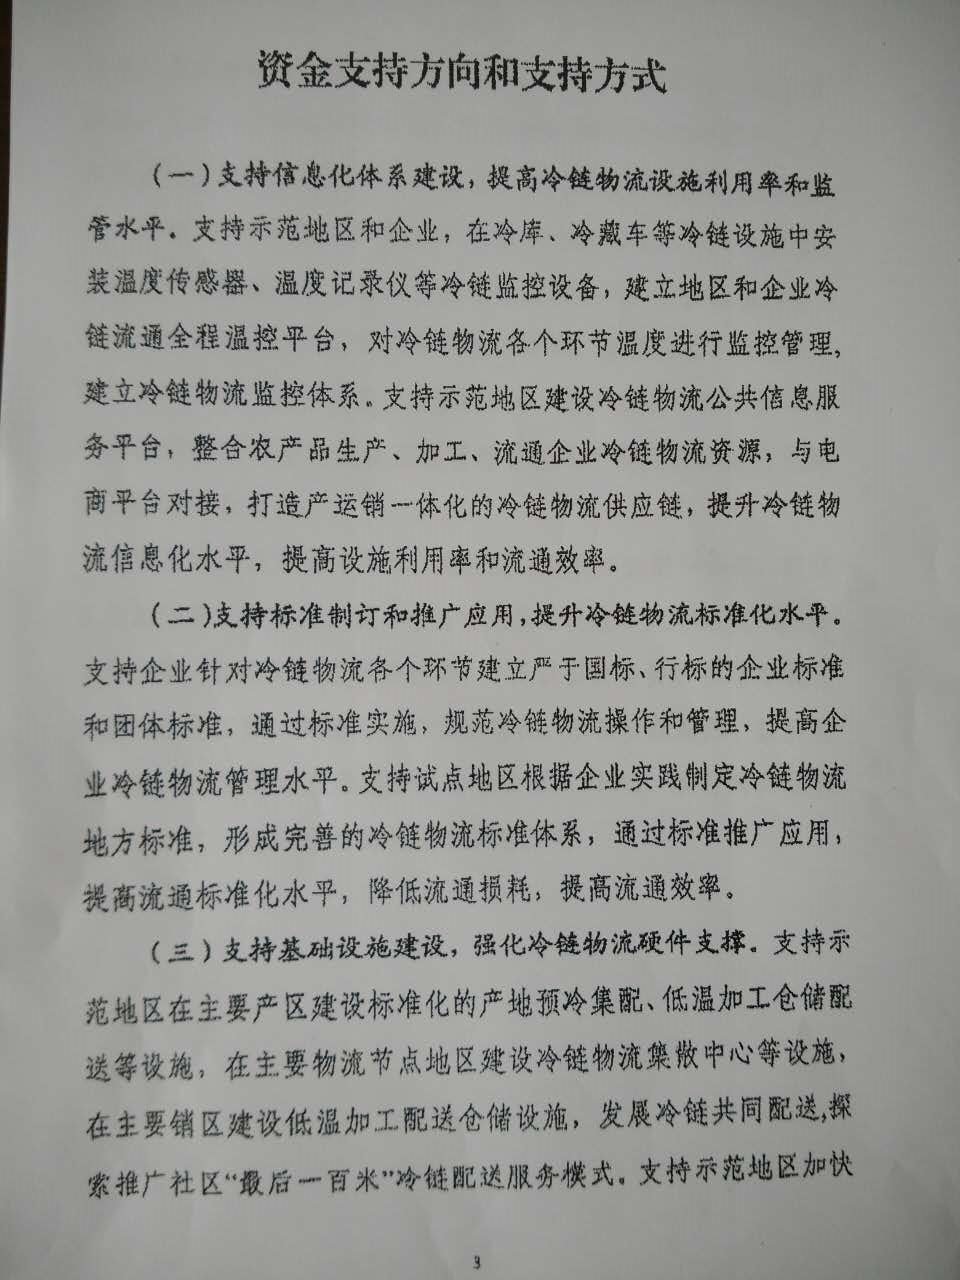 资金支持方向和支持方式
（一）支持信息化体系建设，提高冷链物流设施利用率和监
管水平。支持示范地区和企业，在冷库、冷藏车等冷链设施中安
装温度传感器、温度记录仪等冷链监控设备，建立地区和企业冷
链流通全程温控平台，对冷链物流各个环节温度进行监控管理，
建立冷链物流监控体系。支持示范地区建设冷链物流公共信息服
务平台，整合农产品生产、加工、流通企业冷链物流资源，与电
商平台对接，打造产运销一体化的冷链物流供应链，提升冷链物
流信息化水平，提高设施利用率和流通效率。
（二）支持标准制订和推广应用，提升冷链物流标准化水平。
支持企业针对冷链物流各个环节建立严于国标、行标的企业标准
和团体标准，通过标准实施，规范冷链物流操作和管理，提高企
业冷链物流管理水平。支持试点地区根据企业实践制定冷链物流
地方标准，形成完善的冷链物流标准体系，通过标准推广应用，
提高流通标准化水平，降低流通损耗，提高流通效率。
（三）支持基础设施建设，强化冷链物流硬件支撑。支持示
范地区在主要产区建设标准化的产地预冷集配、低温加工仓储配
送等设施，在主要物流节点地区建设冷链物流集散中心等设施，
在主要销区建设低温加工配送仓储设施，发展冷链共同配送,探
索推广社区“最后一百米”冷链配送服务模式。支持示范地区加快
3